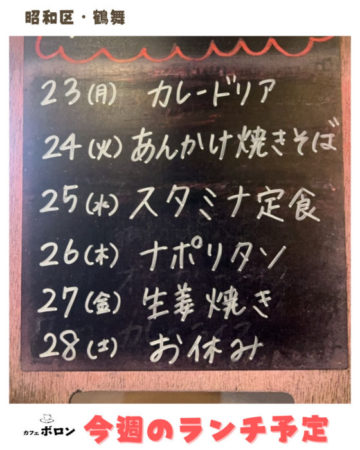 昭和区・鶴舞
23(月) カレードリア
24(火) あんかけ焼きそば
25(水) スタミナ定食
26(木) ナポリタン
27(金) 生姜焼き
28(土) お休み
カフェ ボロン
今週のランチ予定